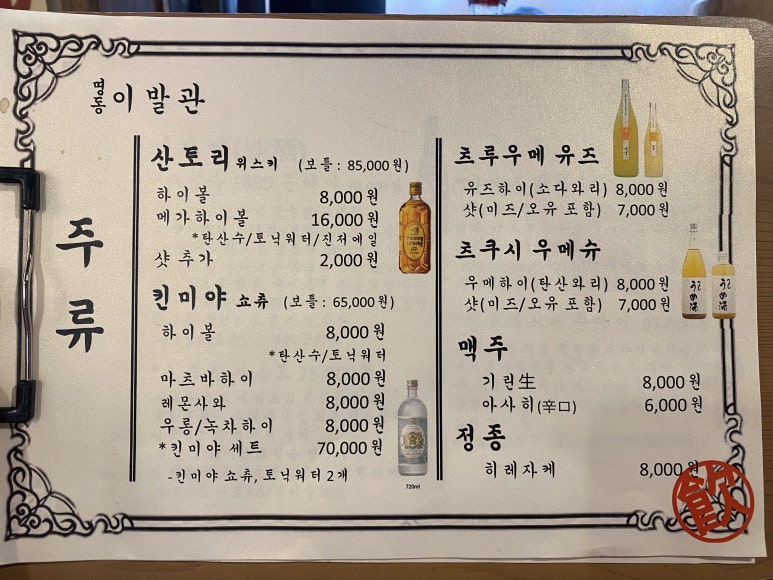 명동 이발관
주류
산토리 위스키 (보틀 : 85,000원)
하이볼 8,000원
메가하이볼 16,000원
*탄산수/토닉워터/진저에일
샷 추가 2,000원
킨미야 쇼츄 (보틀 : 65,000원)
하이볼 8,000원
*탄산수/토닉워터
마츠바하이 8,000원
레몬사와 8,000원
우롱/녹차하이 8,000원
*킨미야 세트 70,000원
-킨미야 쇼츄, 토닉워터 2개
720ml
츠루우메 유즈
유즈하이(소다와리) 8,000원
샷(미즈/오유 포함) 7,000원
츠쿠시 우메슈
우메하이(탄산와리) 8,000원
샷(미즈/오유 포함) 7,000원
맥주
기린生 8,000원
아사히(辛口) 6,000원
정종
히레자케 8,000원
飮